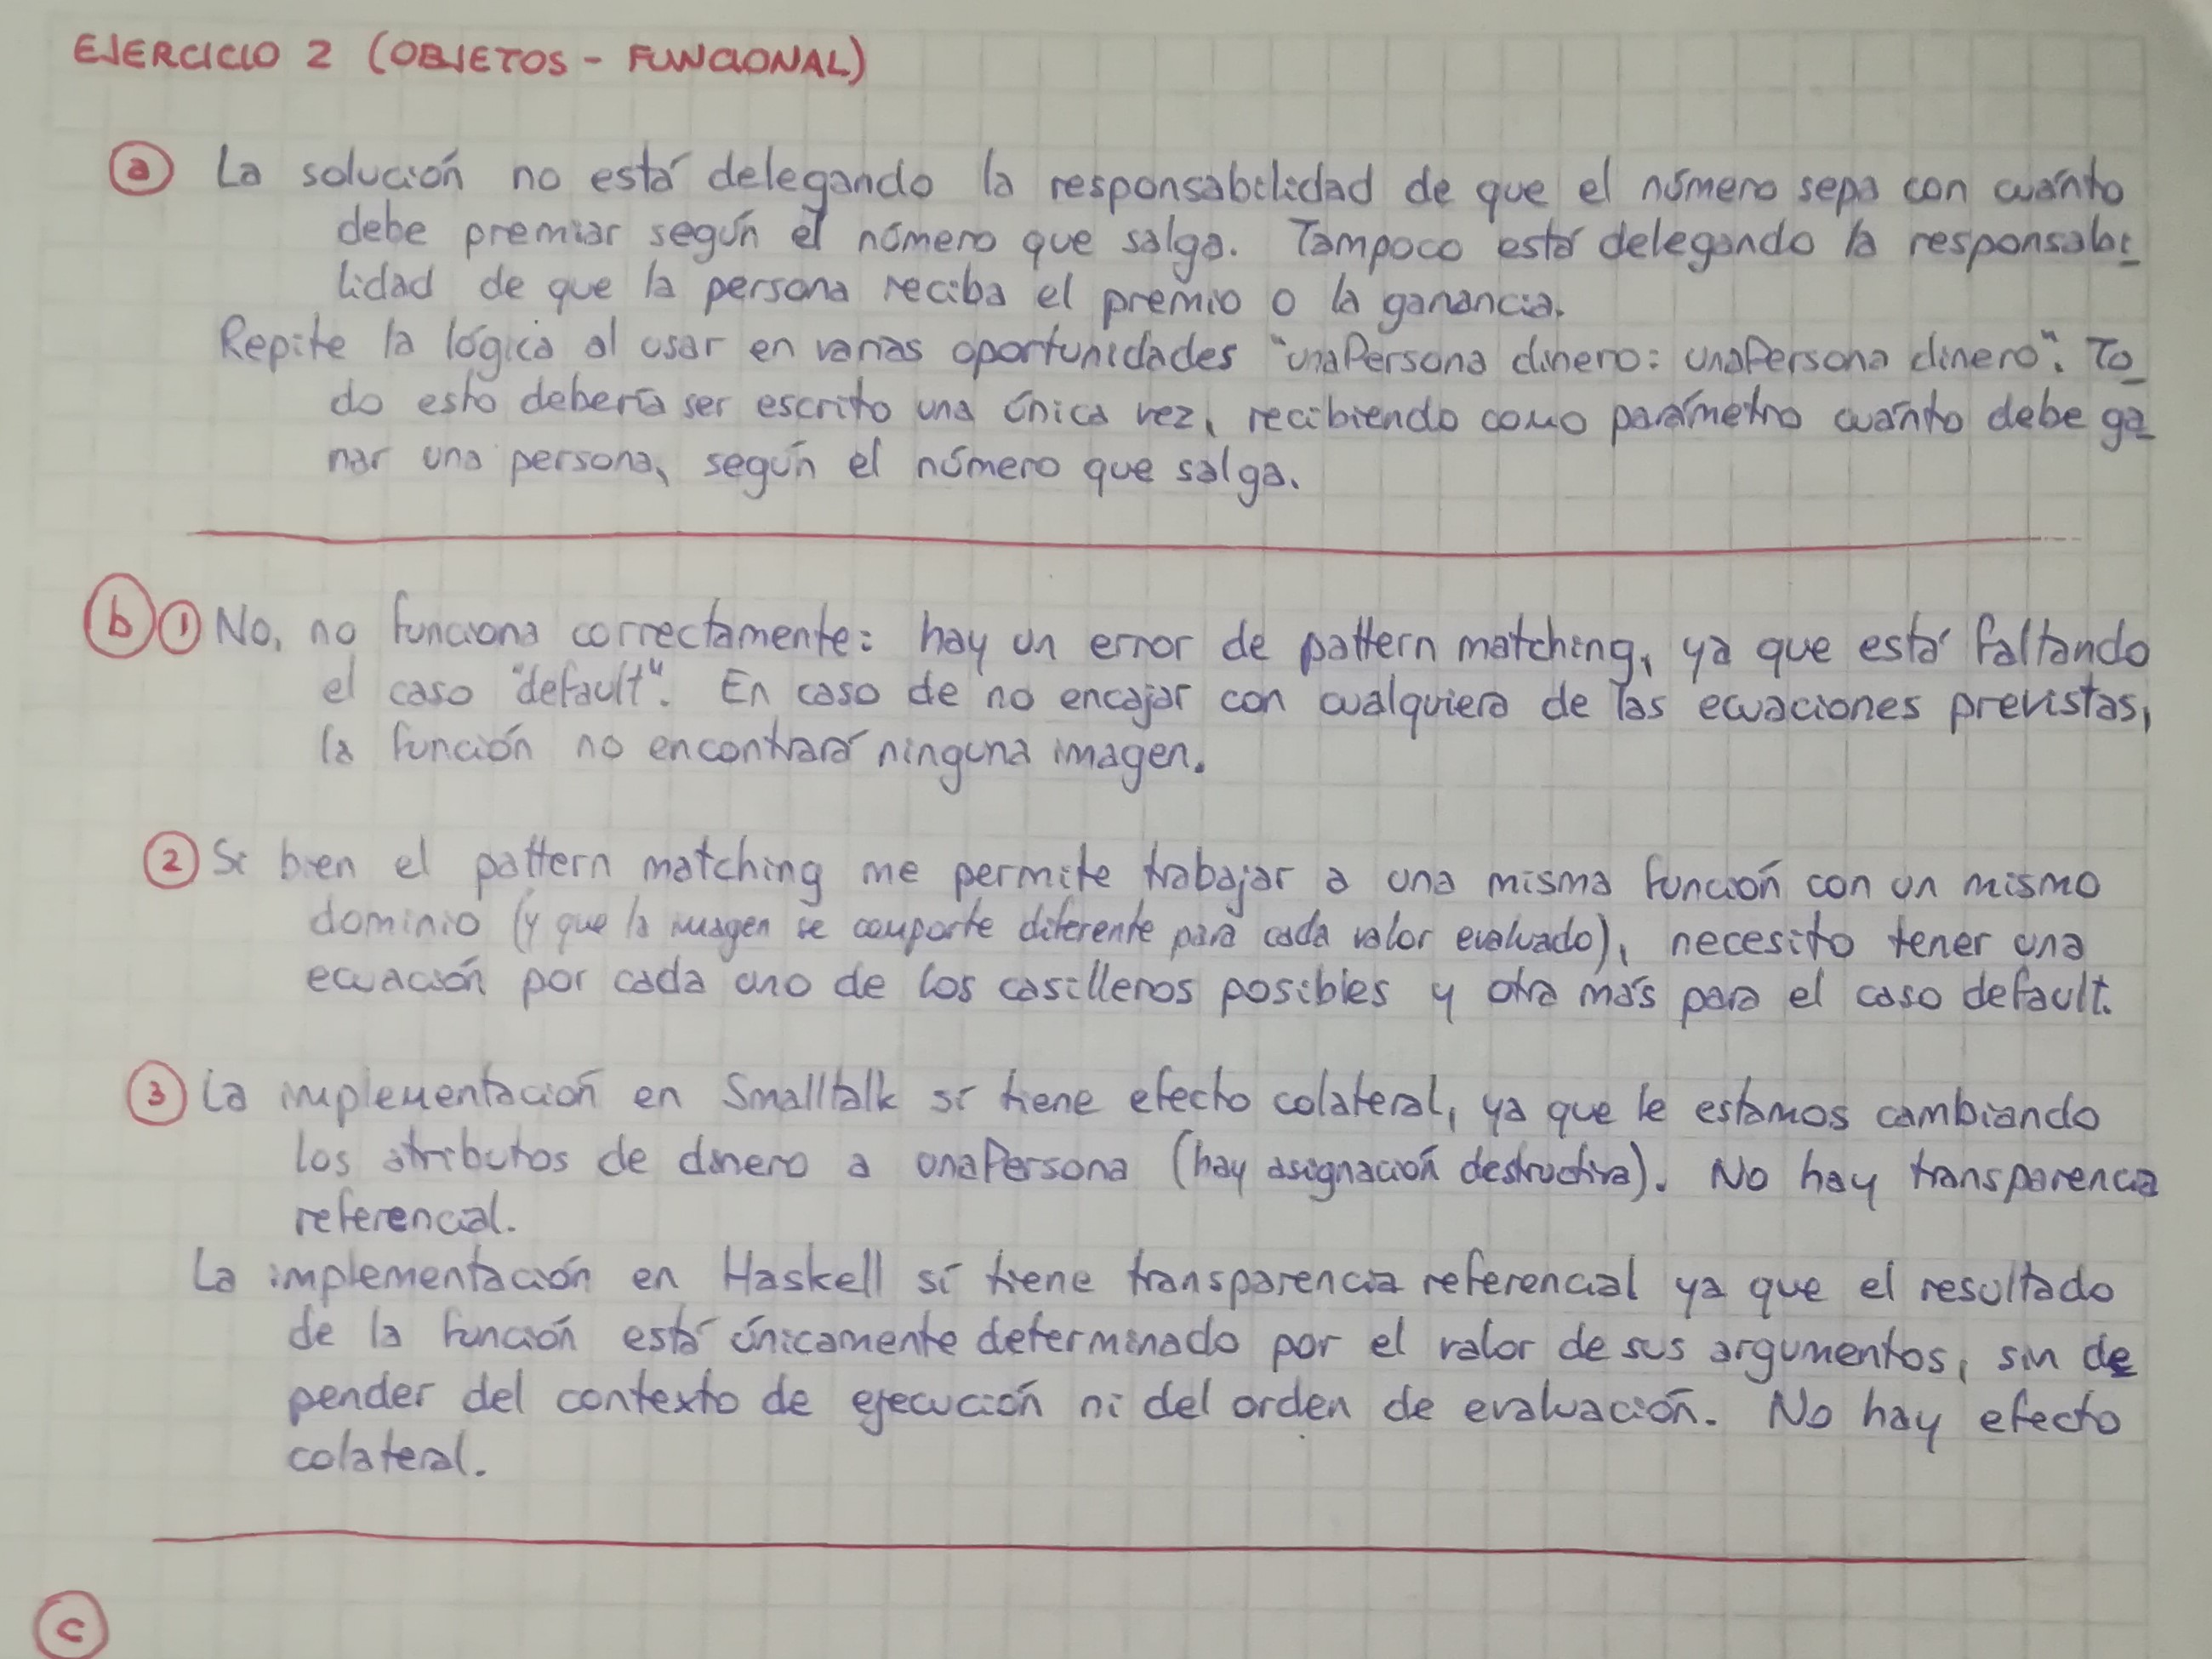 EJERCICIO 2 (OBJETOS - FUNCIONAL)
a La solución no está delegando la responsabilidad de que el número sepa con cuánto
debe premiar según el número que salga. Tampoco está delegando la responsabi_
lidad de que la persona reciba el premio o la ganancia.
Repite la lógica al usar en varias oportunidades "unaPersona dinero: unaPersona dinero". To_
do esto debería ser escrito una única vez, recibiendo como parámetro cuánto debe ga_
nar una persona, según el número que salga.
b 1 No, no funciona correctamente: hay un error de pattern matching, ya que está faltando
el caso "default". En caso de no encajar con cualquiera de las ecuaciones previstas,
la función no encontrará ninguna imagen.
2 Si bien el pattern matching me permite trabajar a una misma función con un mismo
dominio (y que la imagen se comporte diferente para cada valor evaluado), necesito tener una
ecuación por cada uno de los casilleros posibles y otra más para el caso default.
3 La implementación en Smalltalk sí tiene efecto colateral, ya que le estamos cambiando
los atributos de dinero a unaPersona (hay asignación destructiva). No hay transparencia
referencial.
La implementación en Haskell sí tiene transparencia referencial ya que el resultado
de la función está únicamente determinado por el valor de sus argumentos, sin de
pender del contexto de ejecución ni del orden de evaluación. No hay efecto
colateral.
c